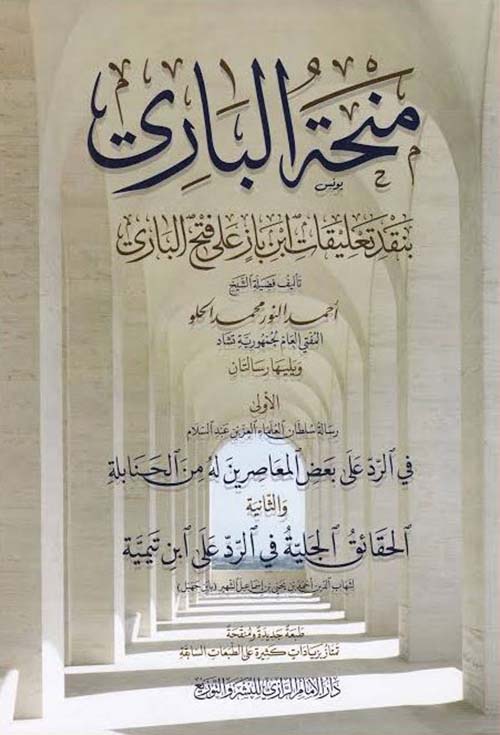 منحة الباري
يونس
بنقد تعليقات ابن باز على فتح الباري
تأليف فضيلة الشيخ
أحمد النور محمد الحلو
المفتي العام لجمهورية تشاد
ويليها رسالتان
الأولى
رسالة سلطان العلماء العز بن عبد السلام
في الرد على بعض المعاصرين له من الحنابلة
والثانية
الحقائق الجلية في الرد على ابن تيمية
لشهاب الدين أحمد بن يحيى بن إسماعيل الشهير (بابن جهبل)
طبعة جديدة ومنقحة
تمتاز بزيادات كثيرة على الطبعات السابقة
دار الإمام الرازي للنشر والتوزيع